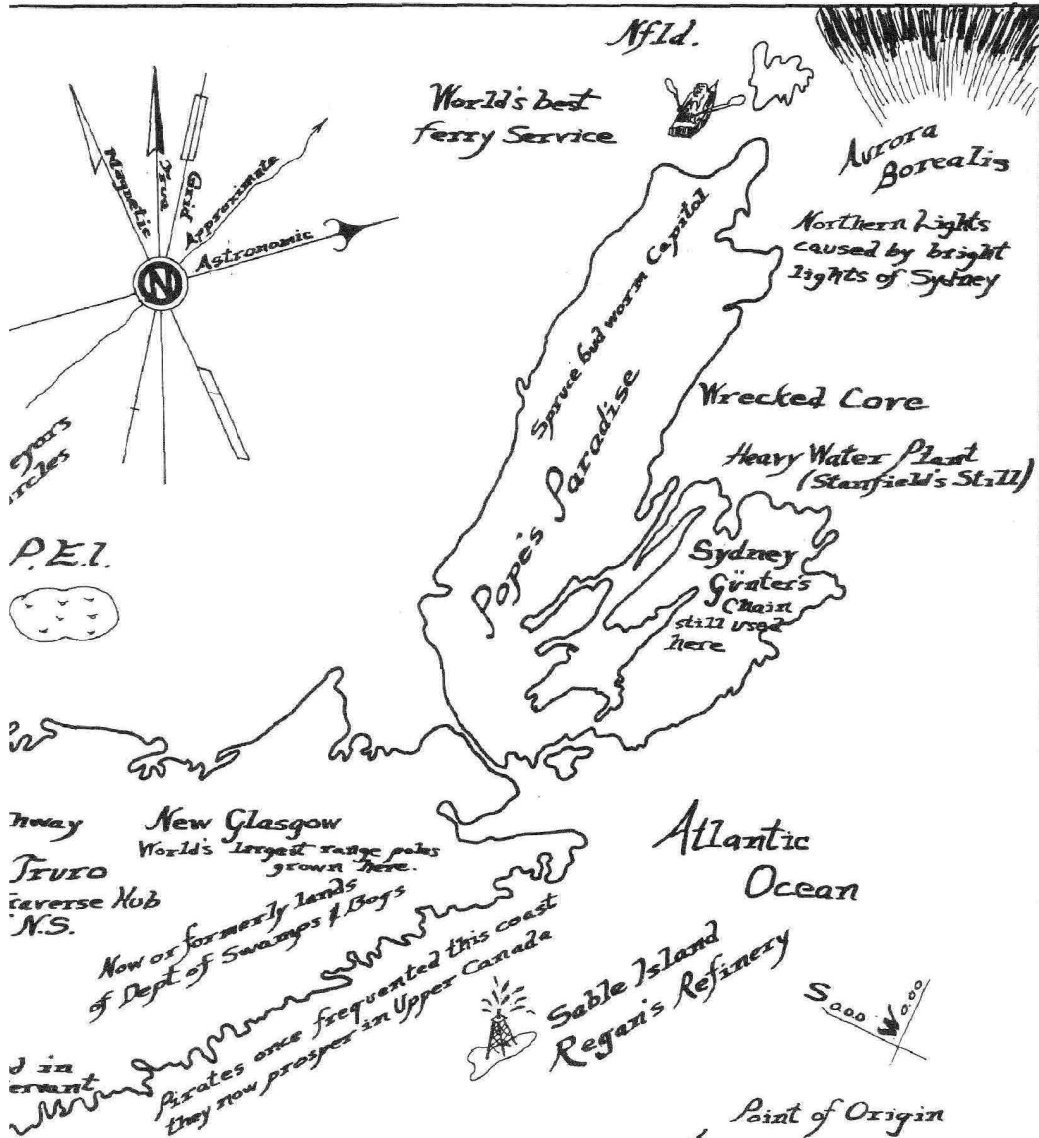 Nfld.
World's best
ferry Service
Aurora
Borealis
Northern Lights
caused by bright
lights of Sydney
Magnetic
True
Grid
Approximate
Astronomic
N
Spruce bud worm Capitol
Pope's Paradise
Wrecked Cove
Heavy Water Plant
(Stanfield's Still)
Sydney
Günter's
Chain
still used
here
P.E.I.
New Glasgow
World's largest range poles
grown here.
Truro
Hub
N.S.
Now or formerly lands
of Dept of Swamps & Bogs
Pirates once frequented this coast
they now prosper in Upper Canada
Atlantic
Ocean
Sable Island
Regan's Refinery
S000
W0.00
d in
Point of Origin